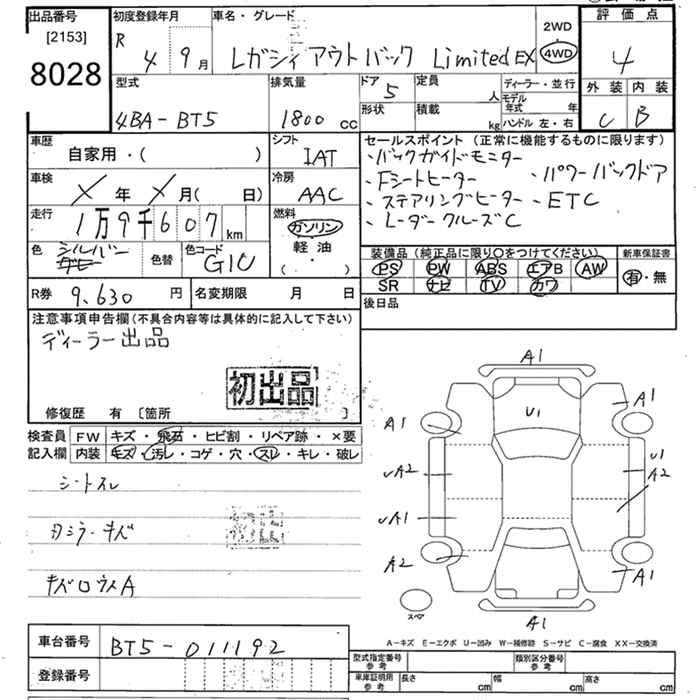 出品番号
[2153]
8028
初度登録年月
R 4 9月
車名・グレード
レガシィ アウトバック Limited EX
2WD
4WD
評価点
4
外装 内装
C B
型式
4BA-BT5
排気量
1800 cc
ドア
5
定員
人
形状
積載
kg
ディーラー・並行
モデル年式 年
ハンドル 左・右
車歴
自家用・( )
シフト
IAT
車検
X年 X月( 日)
冷房
AAC
走行
1万9千607km
燃料
ガソリン
軽油
( )
色
シルバー
色替
色コード
G1U
R券
9,630円
名変期限 月 日
セールスポイント(正常に機能するものに限ります)
・バックガイドモニター
・Fシートヒーター ・パワーバックドア
・ステアリングヒーター ・ETC
・レーダークルーズC
装備品(純正品に限り〇をつけてください)
新車保証書
PS PW ABS エアB AW
SR ナビ TV カワ
有・無
後日品
注意事項申告欄(不具合内容等は具体的に記入して下さい)
ディーラー出品
初出品
修復歴 有 〔箇所 〕
検査員
記入欄
FW キズ・飛石・ヒビ割・リペア跡・×要
内装 キズ・汚レ・コゲ・穴・スレ・キレ・破レ
シートスレ
初出品
キズロウスA
車台番号
BT5-011192
登録番号
A1
A1
A1
U1
U1
A2
UA2
UA1
A2
A1
A1
スペア
A-キズ E-エクボ U-凹み W-補修跡 S-サビ C-腐食 XX-交換済
型式指定番号
参考
類別区分番号
参考
車庫証明用
参考
長さ cm 幅 cm 高さ cm